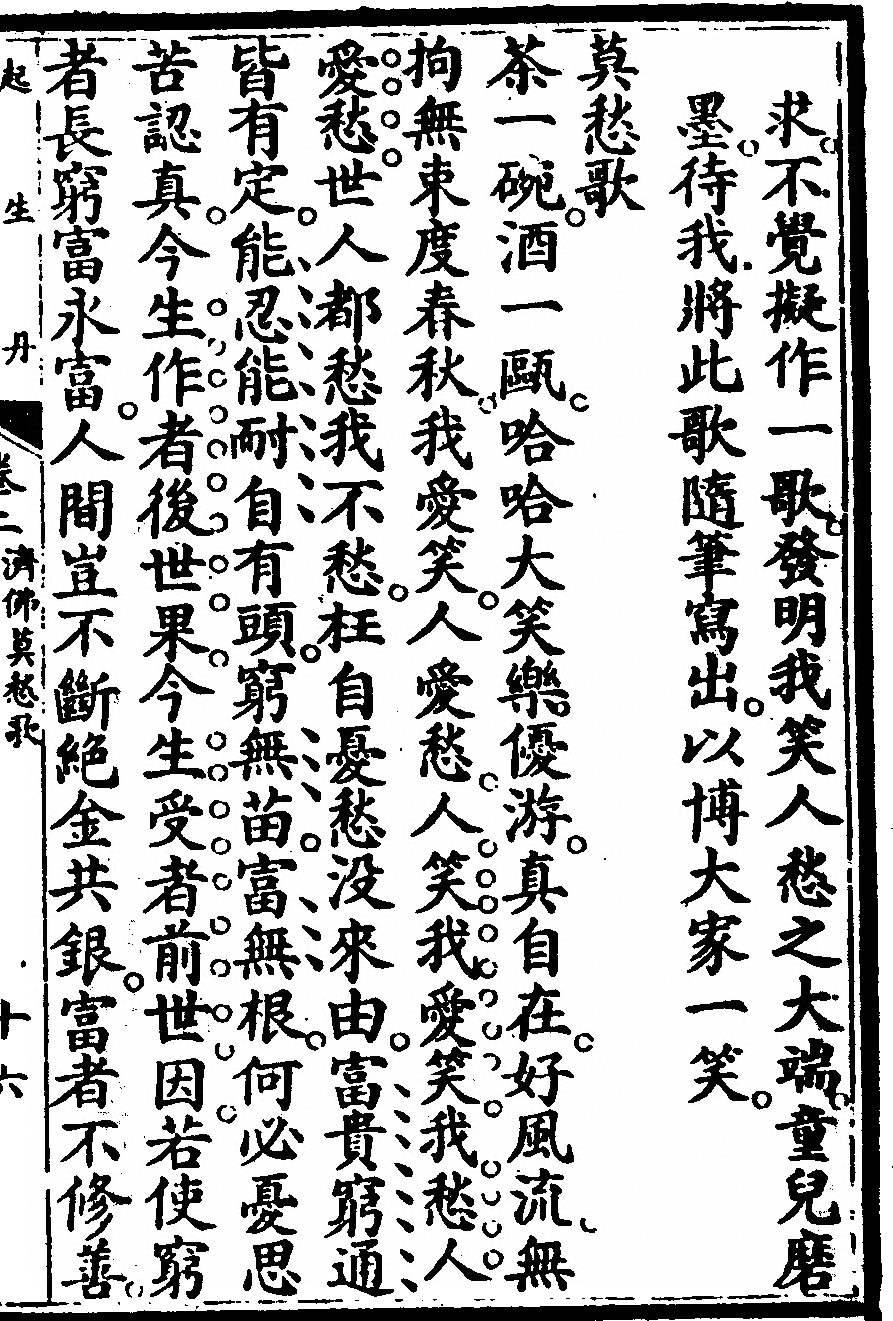 求不覺擬作一歌發明我笑人愁之大端童兒磨
墨待我將此歌隨筆寫出以博大家一笑
莫愁歌
茶一碗酒一甌哈哈大笑樂優游真自在好風流無
拘無束度春秋我愛笑人愛愁人笑我愛笑我愁人
愛愁世人都愁我不愁枉自憂愁没來由富貴窮通
皆有定能忍能耐自有頭窮無苗富無根何必憂思
苦認真今生作者後世果今生受者前世因若使窮
者長窮富永富人間豈不斷絕金共銀富者不修善
起生丹
卷二 濟佛莫愁歌
十六